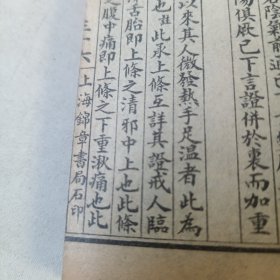 俱厥已下言證併於裏而加重
以來其人微發熱手足溫者此為
此承上條互詳其證戒人臨
舌胎即上條之清邪中上也此條
之腹中痛即上條之下重湫痛也此
三十六 上海錦章書局石印